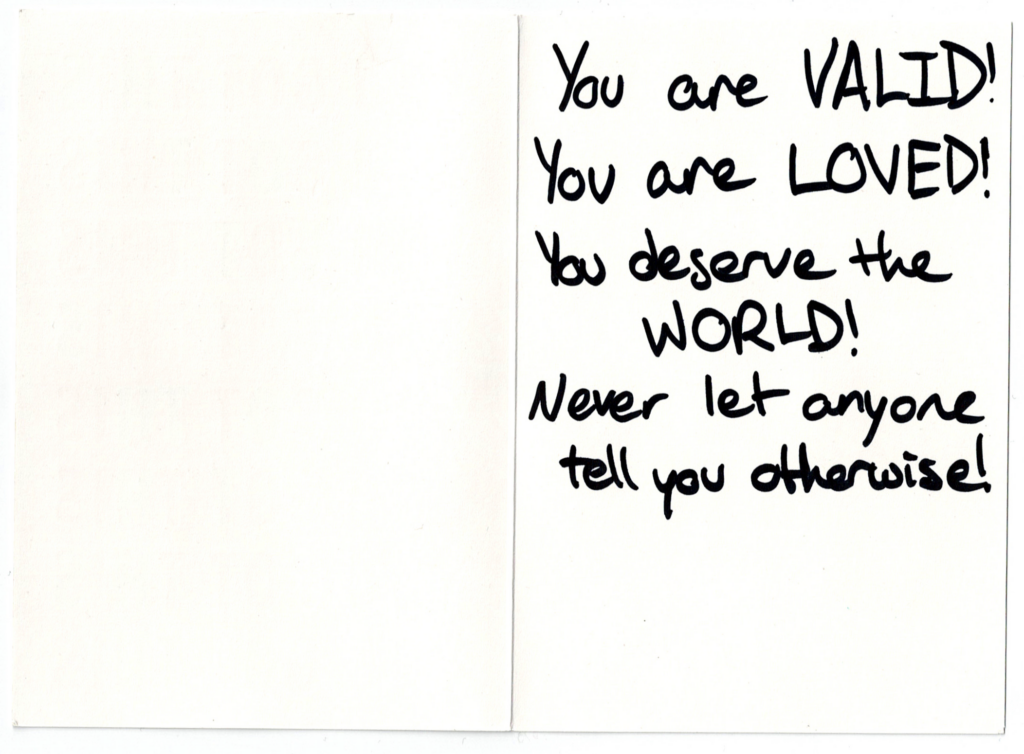 You are VALID!
You are LOVED!
You deserve the
WORLD!
Never let anyone
tell you otherwise!